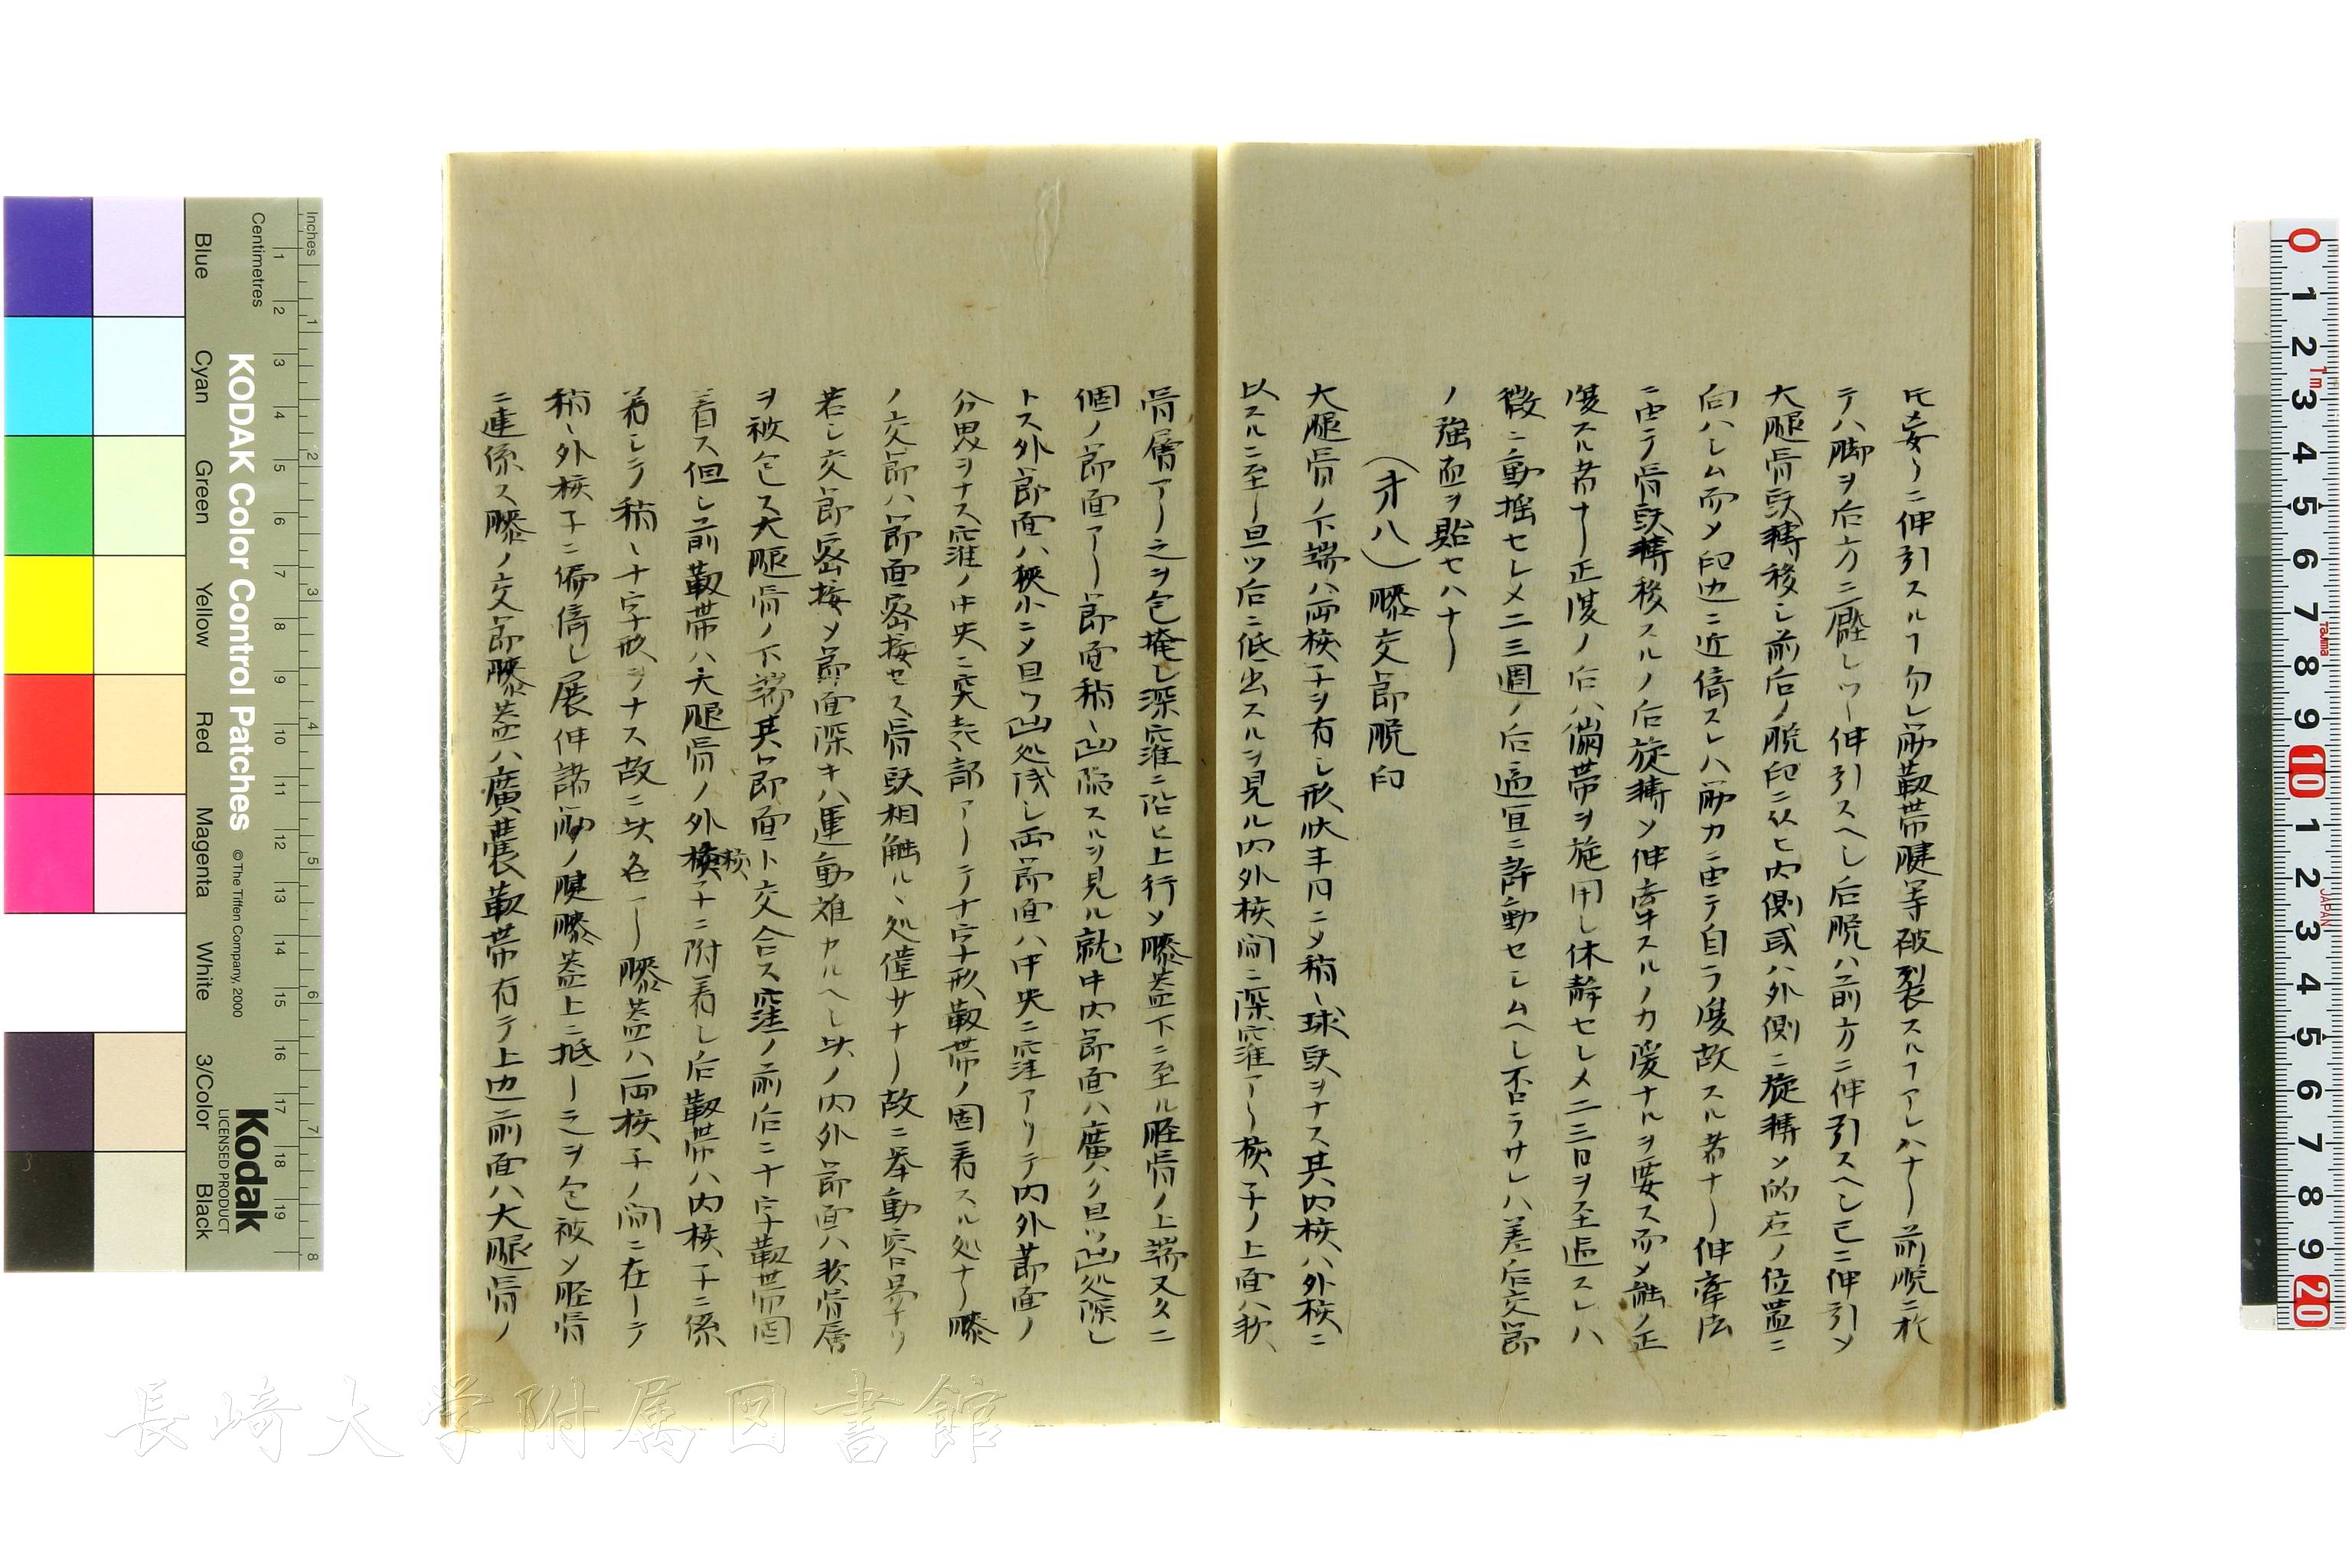 妄リニ伸引スルヿ勿レ筋靱帯腱等破裂スルヿアレハナリ前脱ニ於
テハ脚ヲ后方ニ壓シツヽ伸引スヘシ后脱ハ前方ニ伸引スヘシ已ニ伸引メ
大腿骨頭轉移シ前后ノ脱臼ニ从ヒ内側或ハ外側ニ旋轉メ的应ノ位置ニ
向ハシム而メ臼边ニ近倚スレハ筋力ニ由テ自ラ復故スル者ナリ伸牽法
ニ由テ骨頭轉移スルノ后旋轉メ伸牽スルノカ緩ナルヲ要ス而メ能ノ正
復スル者ナリ正復ノ后ハ繃帯ヲ施用シ休静セシメ二三日ヲ至過スレハ
微ニ動揺セシメ二三週ノ后適宜ニ許動セシムヘシ否ラサレハ差后交節
ノ強直ヲ貽セハナリ
(才八)膝交節脱臼
大腿骨ノ下端ハ両核子ヲ有シ形状半円ニメ稍〻球頭ヲナス其内核ハ外核ニ
以スルニ至リ且ツ后ニ低出スルヲ見ル内外核間ニ深窪アリ核子ノ上面ハ軟
骨層アリ之ヲ包掩シ深窪ニ沿ヒ上行メ膝蓋下ニ至ル脛骨ノ上端又タ二
個ノ節面アリ節面稍〻凹陥スルヲ見ル就中内節面ハ廣ク且ツ凹処深シ
トス外節面ハ狹小ニメ且ツ凹処浅シ両節面ハ中央ニ窪アリテ内外節面ノ
分界ヲナス窪ノ中央ニ突起部アリテ十字形靱帯ノ固着スル処ナリ膝
ノ交節ハ節面密接セス骨頭相触ルヽ処僅サナリ故ニ挙動容易ナリ
若シ交節密接メ節面深キハ運動难カルヘシ其ノ内外節面ハ軟骨層
ヲ被包ス大腿骨ノ下端其節面ト交合ス窪ノ前后ニ十字靱帯固
着ス但シ前靱帯ハ大腿骨ノ外核子ニ附着シ后靱帯ハ内核子ニ係
着シテ稍〻十字形ヲナス故ニ其名アリ膝蓋ハ両核子ノ間ニ在リテ
稍〻外核子ニ偏倚シ展伸諸筋ノ腱膝蓋上ニ抵リ之ヲ包被メ脛骨
ニ連係ス膝ノ交節膝蓋ハ廣囊靱帯有テ上边前面ハ大腿骨ノ
Inches
Centimetres
Blue
Cyan
Green
Yellow
Red
Magenta
White
3/Color
Black
KODAK Color Control Patches
© The Tiffen Company, 2000
Kodak
LICENSED PRODUCT
長崎大学附属図書館